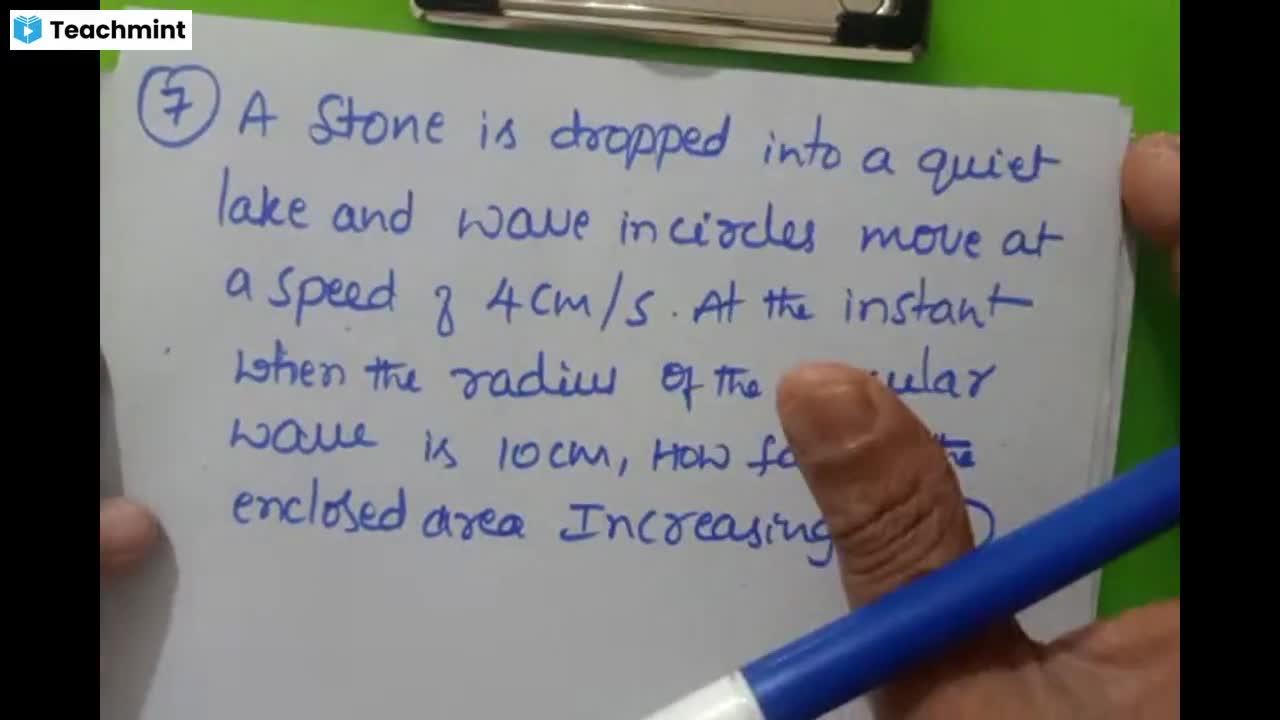 Teachmint
7 A Stone is dropped into a quiet
lake and wave in circles move at
a speed of 4cm/s. At the instant
when the radius of the
wave is 10cm, How the
enclosed area Increasing